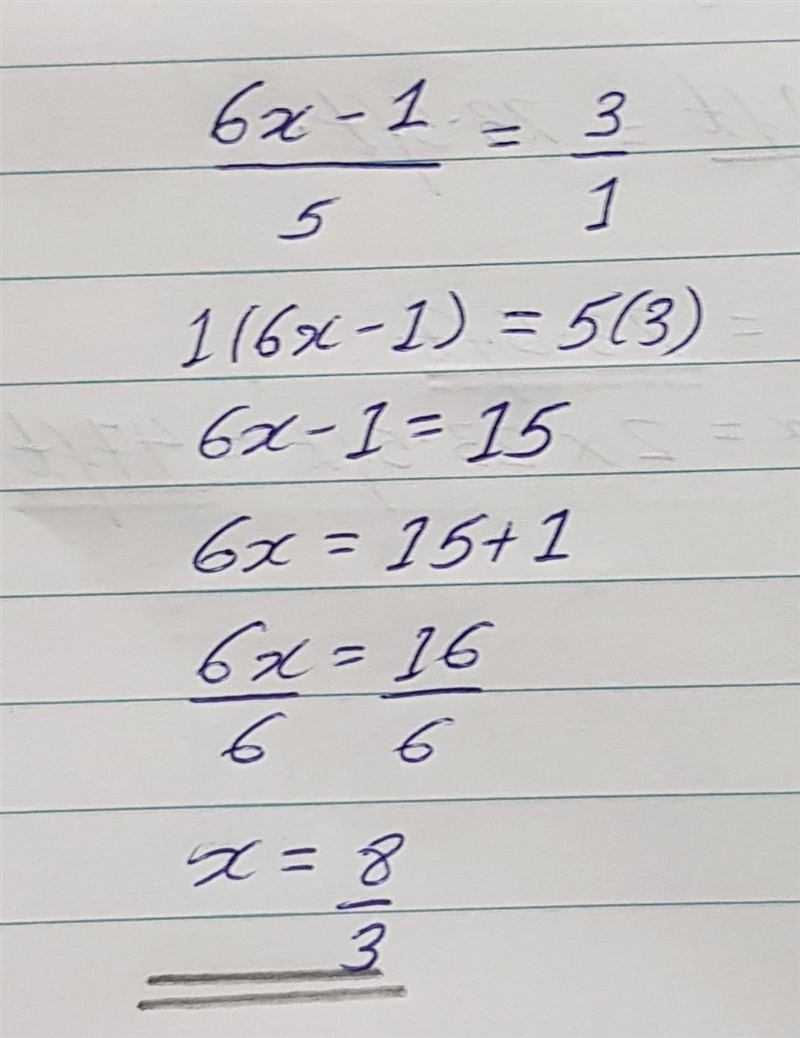 6x - 1 / 5 = 3 / 1
1(6x - 1) = 5(3)
6x - 1 = 15
6x = 15 + 1
6x / 6 = 16 / 6
x = 8 / 3